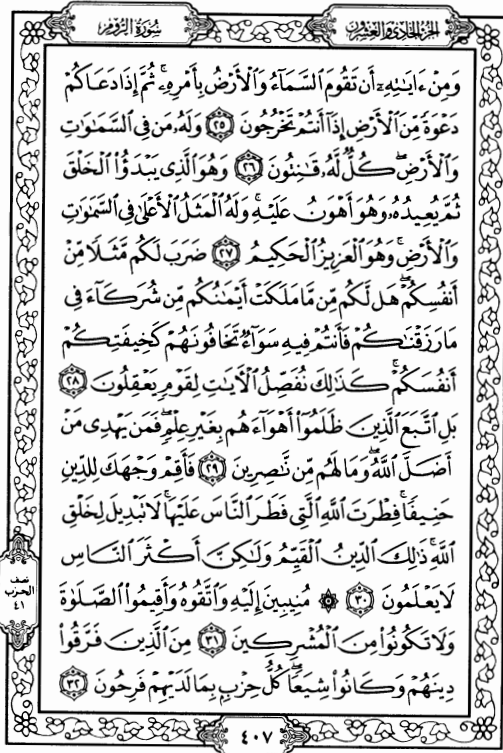 سُورَةُ الرُّومِ
الجُزْءُ الحَادِي وَالعِشْرُونَ
وَمِنْ ءَايَٰتِهِۦٓ أَن تَقُومَ السَّمَآءُ وَالْأَرْضُ بِأَمْرِهِۦ ۚ ثُمَّ إِذَا دَعَاكُمْ
دَعْوَةً مِّنَ الْأَرْضِ إِذَآ أَنتُمْ تَخْرُجُونَ ٢٥ وَلَهُۥ مَن فِي السَّمَٰوَٰتِ
وَالْأَرْضِ ۖ كُلٌّ لَّهُۥ قَٰنِتُونَ ٢٦ وَهُوَ الَّذِي يَبْدَؤُا۟ الْخَلْقَ
ثُمَّ يُعِيدُهُۥ وَهُوَ أَهْوَنُ عَلَيْهِ ۚ وَلَهُ الْمَثَلُ الْأَعْلَىٰ فِي السَّمَٰوَٰتِ
وَالْأَرْضِ ۚ وَهُوَ الْعَزِيزُ الْحَكِيمُ ٢٧ ضَرَبَ لَكُم مَّثَلًا مِّنْ
أَنفُسِكُمْ ۖ هَل لَّكُم مِّن مَّا مَلَكَتْ أَيْمَٰنُكُم مِّن شُرَكَآءَ فِي
مَا رَزَقْنَٰكُمْ فَأَنتُمْ فِيهِ سَوَآءٌ تَخَافُونَهُمْ كَخِيفَتِكُمْ
أَنفُسَكُمْ ۚ كَذَٰلِكَ نُفَصِّلُ الْأَيَٰتِ لِقَوْمٍ يَعْقِلُونَ ٢٨
بَلِ اتَّبَعَ الَّذِينَ ظَلَمُوٓا۟ أَهْوَآءَهُم بِغَيْرِ عِلْمٍ ۖ فَمَن يَهْدِي مَنْ
أَضَلَّ اللَّهُ ۖ وَمَا لَهُم مِّن نَّٰصِرِينَ ٢٩ فَأَقِمْ وَجْهَكَ لِلدِّينِ
حَنِيفًا ۚ فِطْرَتَ اللَّهِ الَّتِي فَطَرَ النَّاسَ عَلَيْهَا ۚ لَا تَبْدِيلَ لِخَلْقِ
اللَّهِ ۚ ذَٰلِكَ الدِّينُ الْقَيِّمُ وَلَٰكِنَّ أَكْثَرَ النَّاسِ
لَا يَعْلَمُونَ ٣٠ ۞ مُنِيبِينَ إِلَيْهِ وَاتَّقُوهُ وَأَقِيمُوا۟ الصَّلَوٰةَ
وَلَا تَكُونُوا۟ مِنَ الْمُشْرِكِينَ ٣١ مِنَ الَّذِينَ فَرَّقُوا۟
دِينَهُمْ وَكَانُوا۟ شِيَعًا ۖ كُلُّ حِزْبٍۭ بِمَا لَدَيْهِمْ فَرِحُونَ ٣٢
نصف
الحزب
٤١
٤٠٧